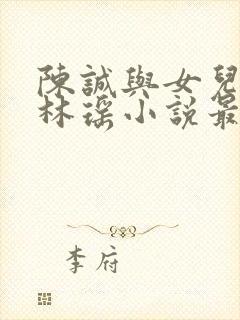 陳誠與女兒
林瑶小說最
李府